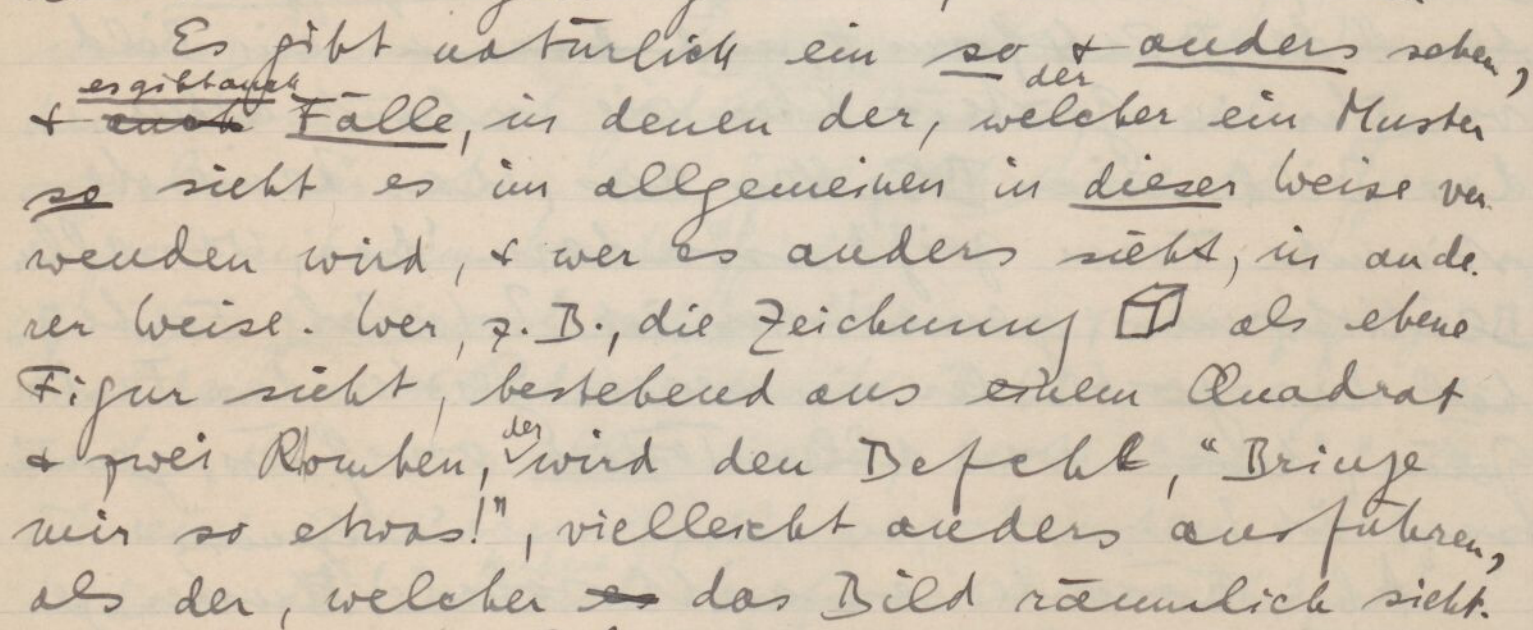 Es gibt natürlich ein so & anders sehen,
es gibt auch der
& auch Fälle, in denen der, welcher ein Muster
so sieht es im allgemeinen in dieser Weise ver-
wenden wird, & wer es anders sieht, in ande-
rer Weise. Wer, z.B., die Zeichnung als ebene
Figur sieht, bestehend aus einem Quadrat
der
& zwei Romben, wird den Befehl, "Bringe
mir so etwas!", vielleicht anders ausführen,
als der, welcher es das Bild räumlich sieht.